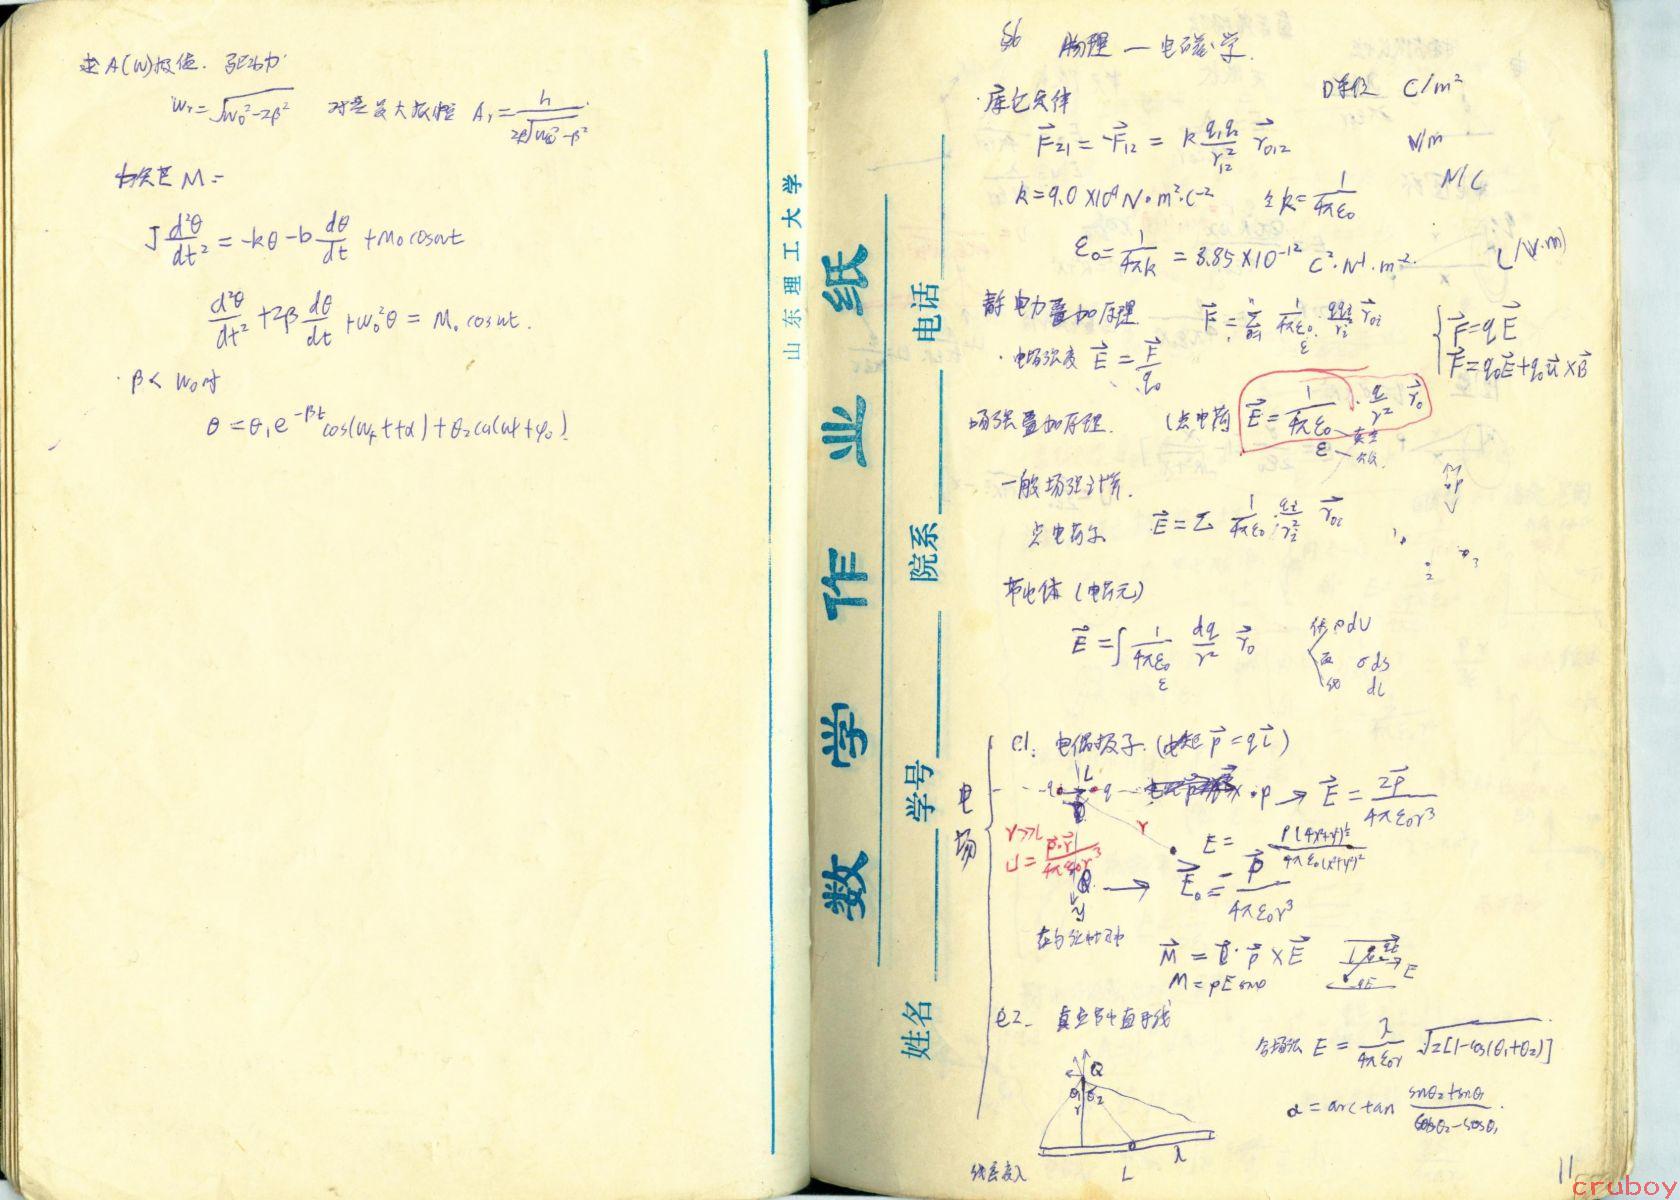 求A(W)极值. 驱动力
Wr=√(W₀²-2β²) 对应最大振幅 Ar=h/(2β√(W₀²-β²))
M=
J d²θ/dt² = -kθ-b dθ/dt +M₀cosωt
d²θ/dt² +2β dθ/dt +W₀²θ = M₀ cosωt.
·β< W₀时
θ=θ₁e^(-βt) cos(Wft+α)+θ₂cos(ωt+φ₀)
山东理工大学
数学作业纸
姓名 学号 院系 电话
§6 物理—电磁学.
·库仑定律 D单位 C/m²
F⃗₂₁=-F⃗₁₂=k q₁q₂/r₁₂² r⃗₀₁₂ N/m
N/C
k=9.0×10⁹N·m²·C⁻² 令k=1/(4πε₀)
ε₀=1/(4πk)=8.85×10⁻¹² C²·N⁻¹·m⁻².
静电力叠加原理 F⃗=Σ 1/(4πε₀) qqᵢ/rᵢ² r⃗₀ᵢ
ε
F⃗=qE⃗
F⃗=q₀E⃗+q₀u⃗×B⃗
·电场强度 E⃗=F⃗/q₀
场强叠加原理. (点电荷 E⃗=1/(4πε₀)·q/r² r⃗₀
ε 真空
一般场强计算.
点电荷系 E⃗=Σ 1/(4πε₀) qᵢ/rᵢ² r⃗₀ᵢ
1 2 3
带电体(电荷元)
E⃗=∫ 1/(4πε₀) dq/r² r⃗₀
ε
体 ρdV
面 σds
线 dl
电场
e1: 电偶极子.(电矩 p⃗=ql⃗)
-q L q ·P → E⃗=2p⃗/(4πε₀r³)
r≫L r
U=p⃗·r⃗/(4πε₀r³)
E=P(4x²+y²)^½/(4πε₀(x²+y²)²)
Q → E⃗₀=-p⃗/(4πε₀r³)
y
M⃗=p⃗×E⃗
M=pEsinθ
qE E qE
e2. 真空带电直导线
Q
θ₁ θ₂
r
L λ
线密度λ
合场强 E=λ/(4πε₀r) √(2[1-cos(θ₁+θ₂)])
α=arctan (sinθ₂+sinθ₁)/(cosθ₂-cosθ₁).
11
cruboy